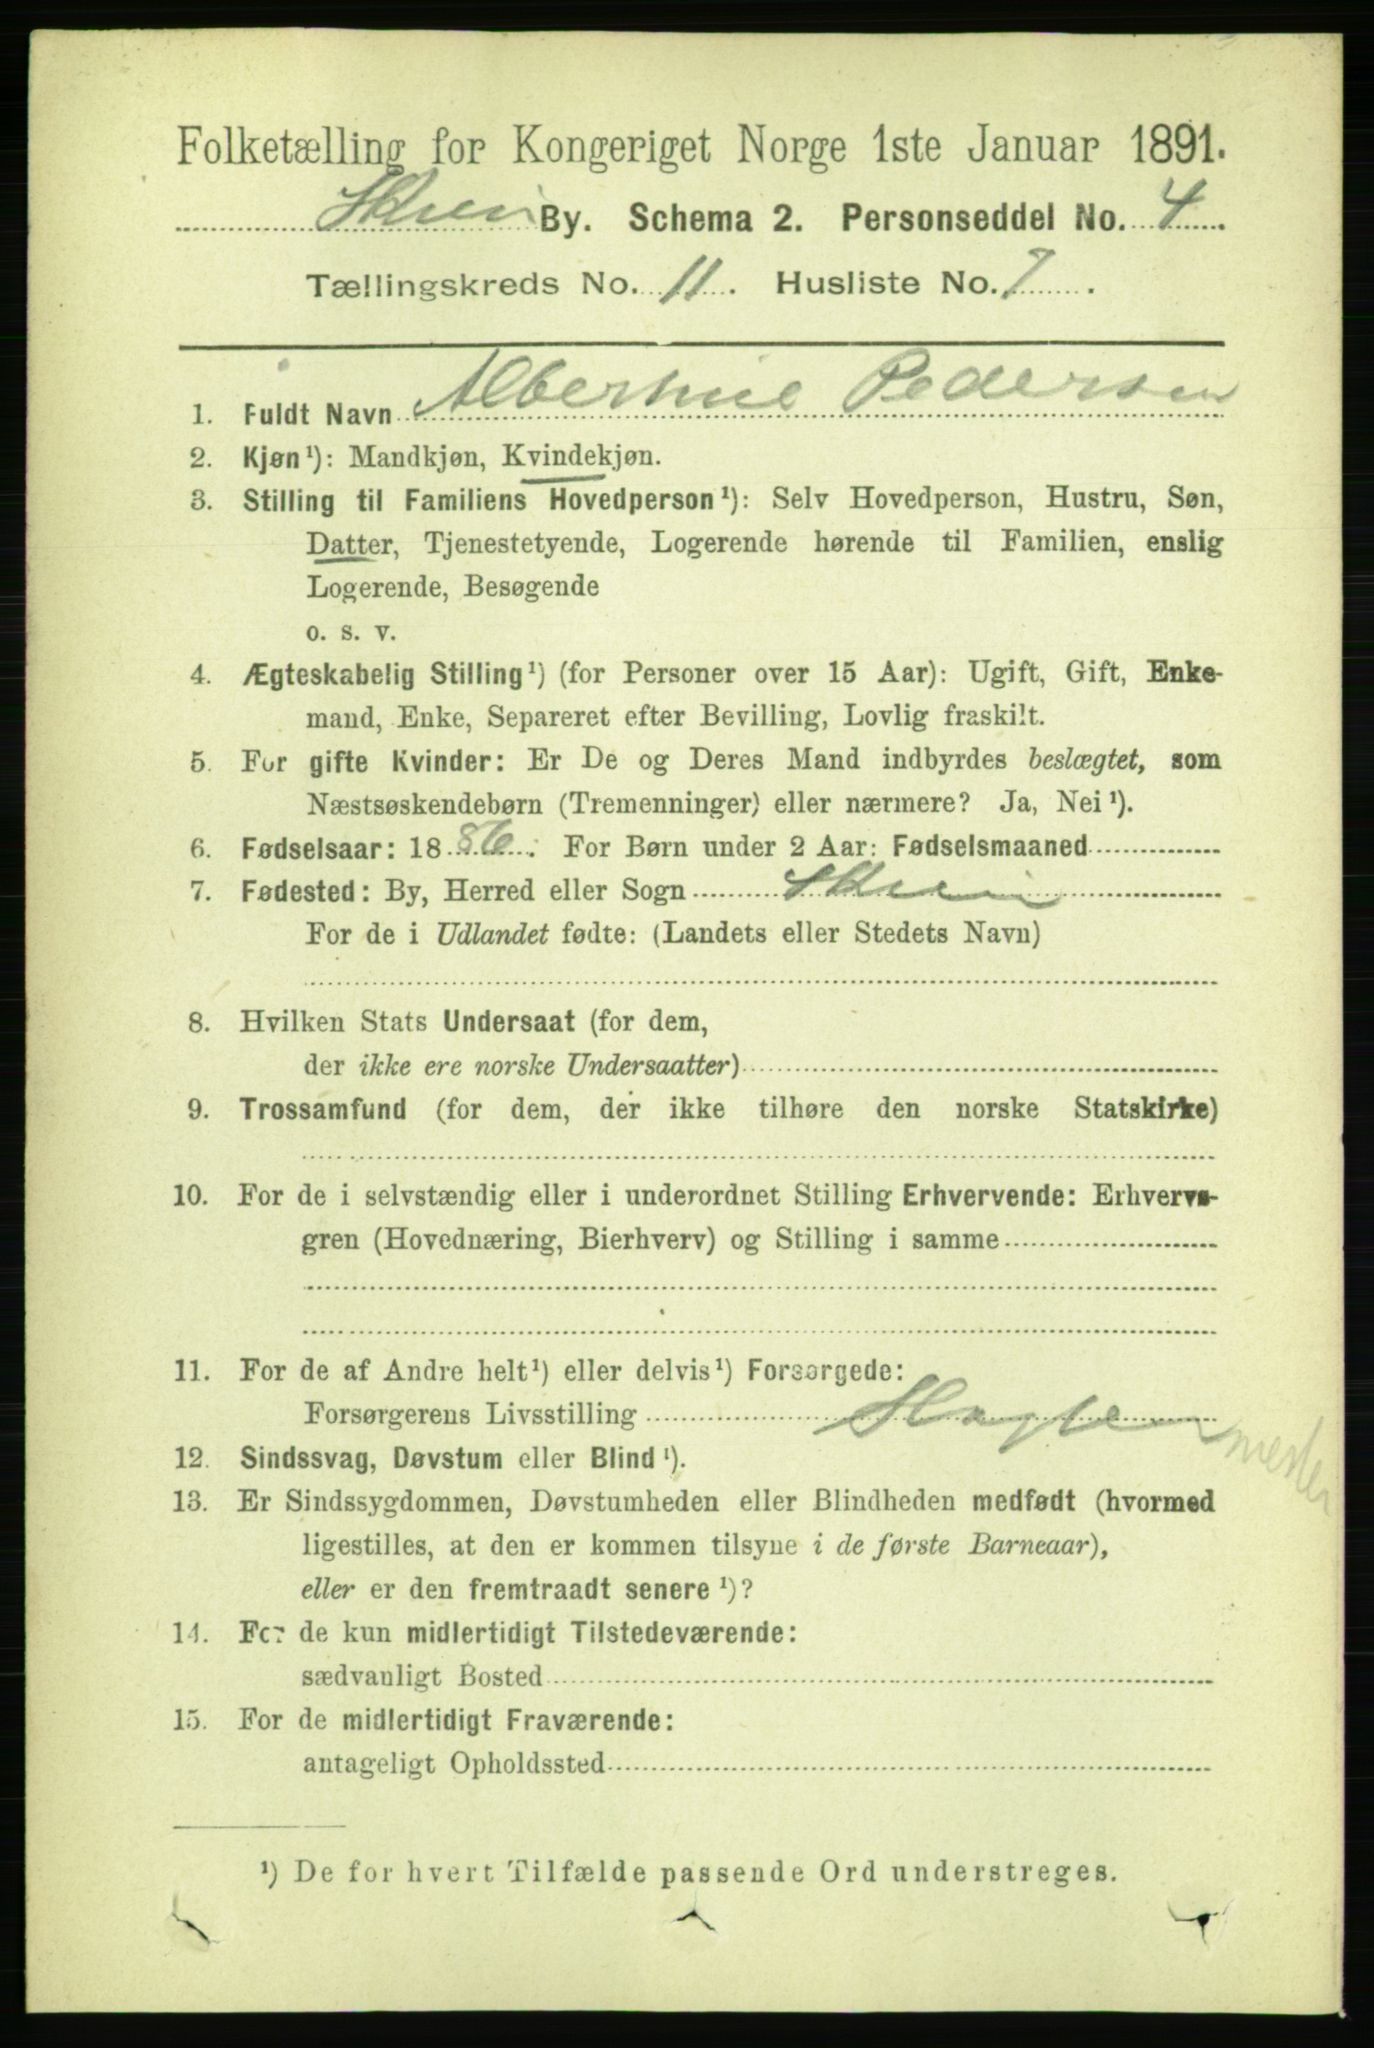 Folketælling for Kongeriget Norge 1ste Januar 1891.
Skien By. Schema 2. Personseddel No. 4
Tællingskreds No. 11. Husliste No. 7.
1. Fuldt Navn Albertine Pedersen
2. Kjøn¹): Mandkjøn, Kvindekjøn.
3. Stilling til Familiens Hovedperson¹): Selv Hovedperson, Hustru, Søn,
Datter, Tjenestetyende, Logerende hørende til Familien, enslig
Logerende, Besøgende
o. s. v.
4. Ægteskabelig Stilling¹) (for Personer over 15 Aar): Ugift, Gift, Enke-
mand, Enke, Separeret efter Bevilling, Lovlig fraskilt.
5. For gifte Kvinder: Er De og Deres Mand indbyrdes beslægtet, som
Næstsøskendebørn (Tremenninger) eller nærmere? Ja, Nei¹).
6. Fødselsaar: 1886. For Børn under 2 Aar: Fødselsmaaned
7. Fødested: By, Herred eller Sogn Skien
For de i Udlandet fødte: (Landets eller Stedets Navn)
8. Hvilken Stats Undersaat (for dem,
der ikke ere norske Undersaatter)
9. Trossamfund (for dem, der ikke tilhøre den norske Statskirke)
10. For de i selvstændig eller i underordnet Stilling Erhvervende: Erhvervs-
gren (Hovednæring, Bierhverv) og Stilling i samme
11. For de af Andre helt¹) eller delvis¹) Forsørgede:
Forsørgerens Livsstilling Slagtermester
12. Sindssvag, Døvstum eller Blind¹).
13. Er Sindssygdommen, Døvstumheden eller Blindheden medfødt (hvormed
ligestilles, at den er kommen tilsyne i de første Barneaar),
eller er den fremtraadt senere¹)?
14. For de kun midlertidigt Tilstedeværende:
sædvanligt Bosted
15. For de midlertidigt Fraværende:
antageligt Opholdssted
¹) De for hvert Tilfælde passende Ord understreges.